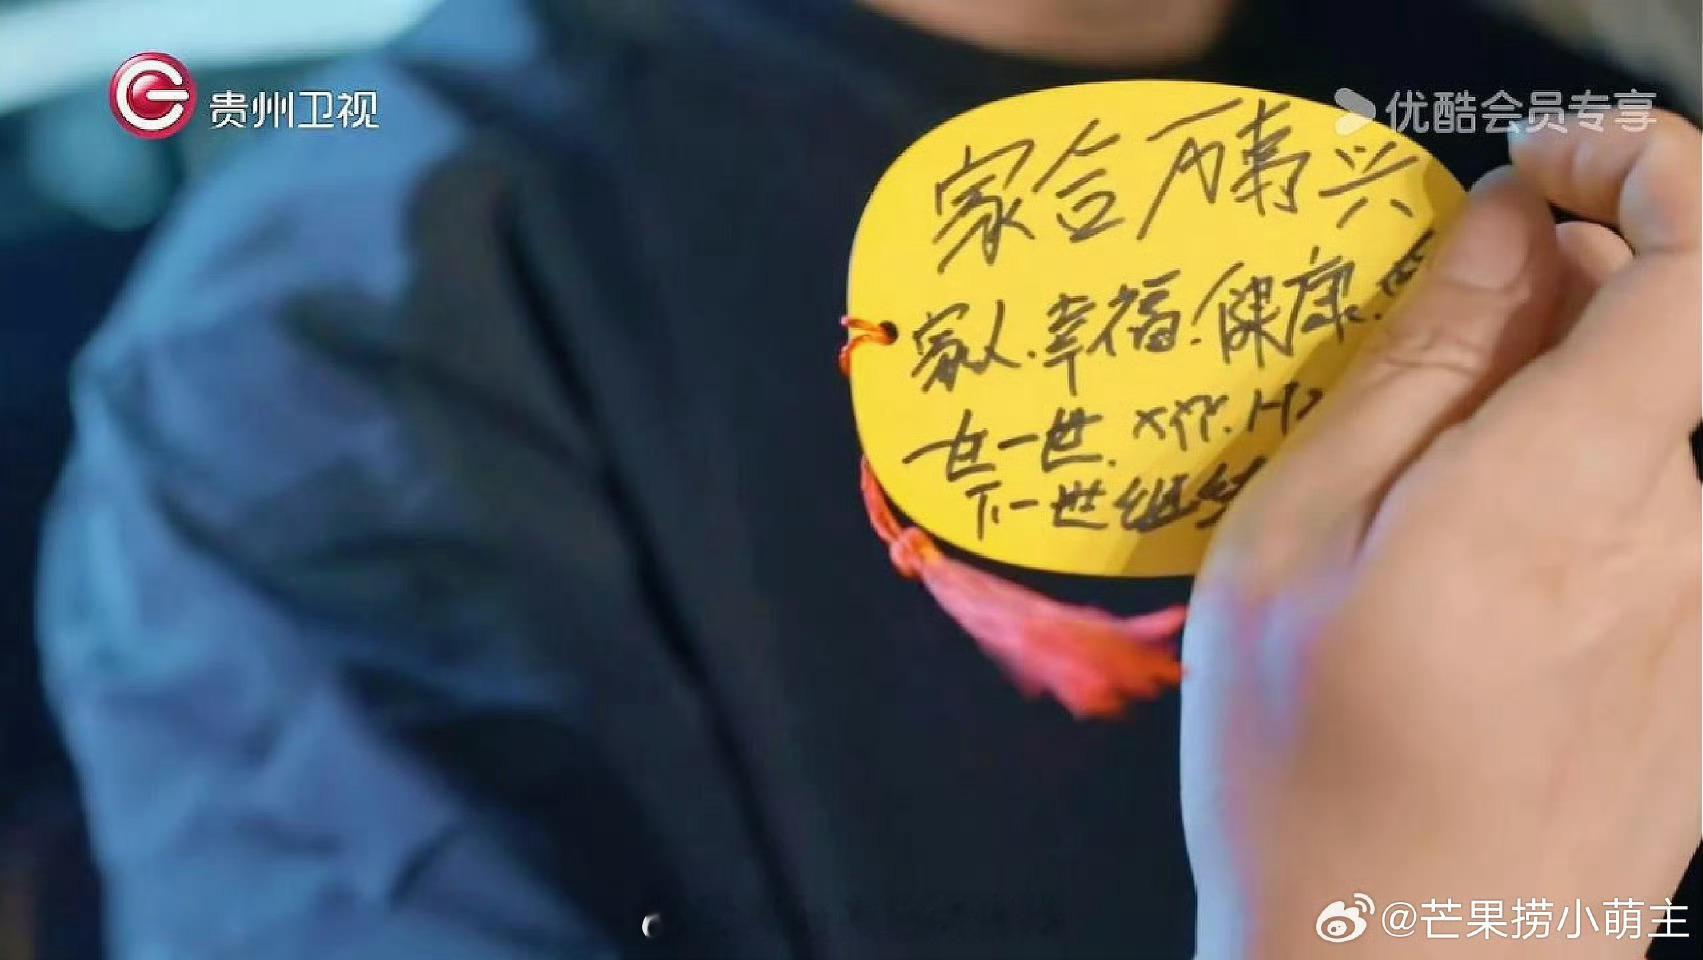 贵州卫视
优酷会员专享
家合万事兴
家人.幸福.健康.
世一世.
下一世继续
@芒果捞小萌主